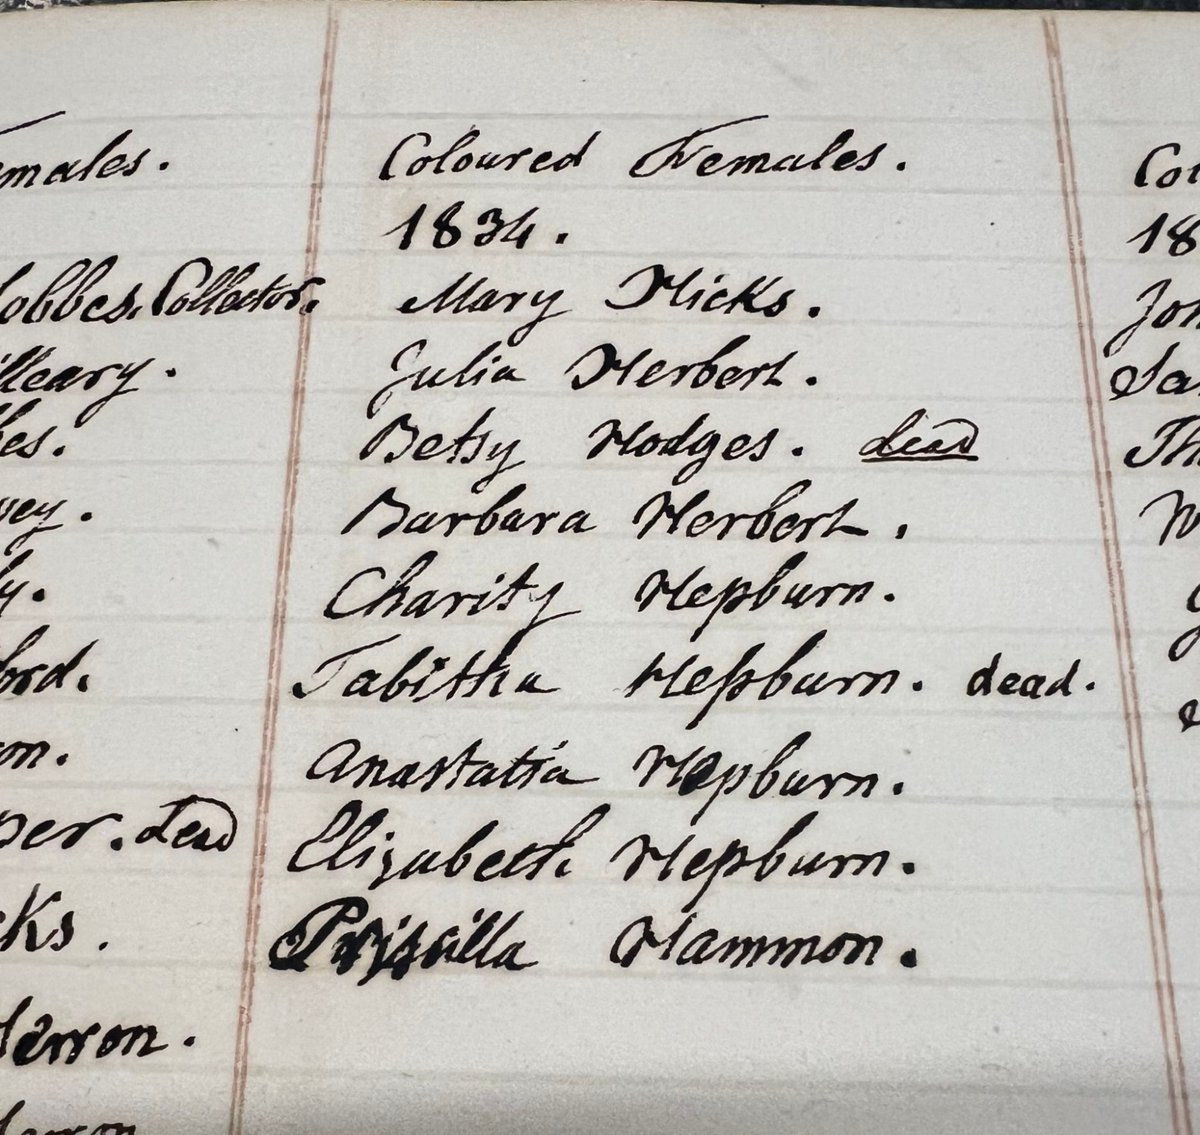 emales.
obbes. Collector.
lleary.
es.
vey.
ly.
ord.
on.
per. dead
cks.
Herron.
Coloured Females.
1834.
Mary Hicks.
Julia Herbert.
Betsy Hodges. dead
Barbara Herbert.
Charity Hepburn.
Tabitha Hepburn. dead.
Anastatia Hepburn.
Elizabeth Hepburn.
Priscilla Hammon.
Col
18
Joh
Sa
Th
W